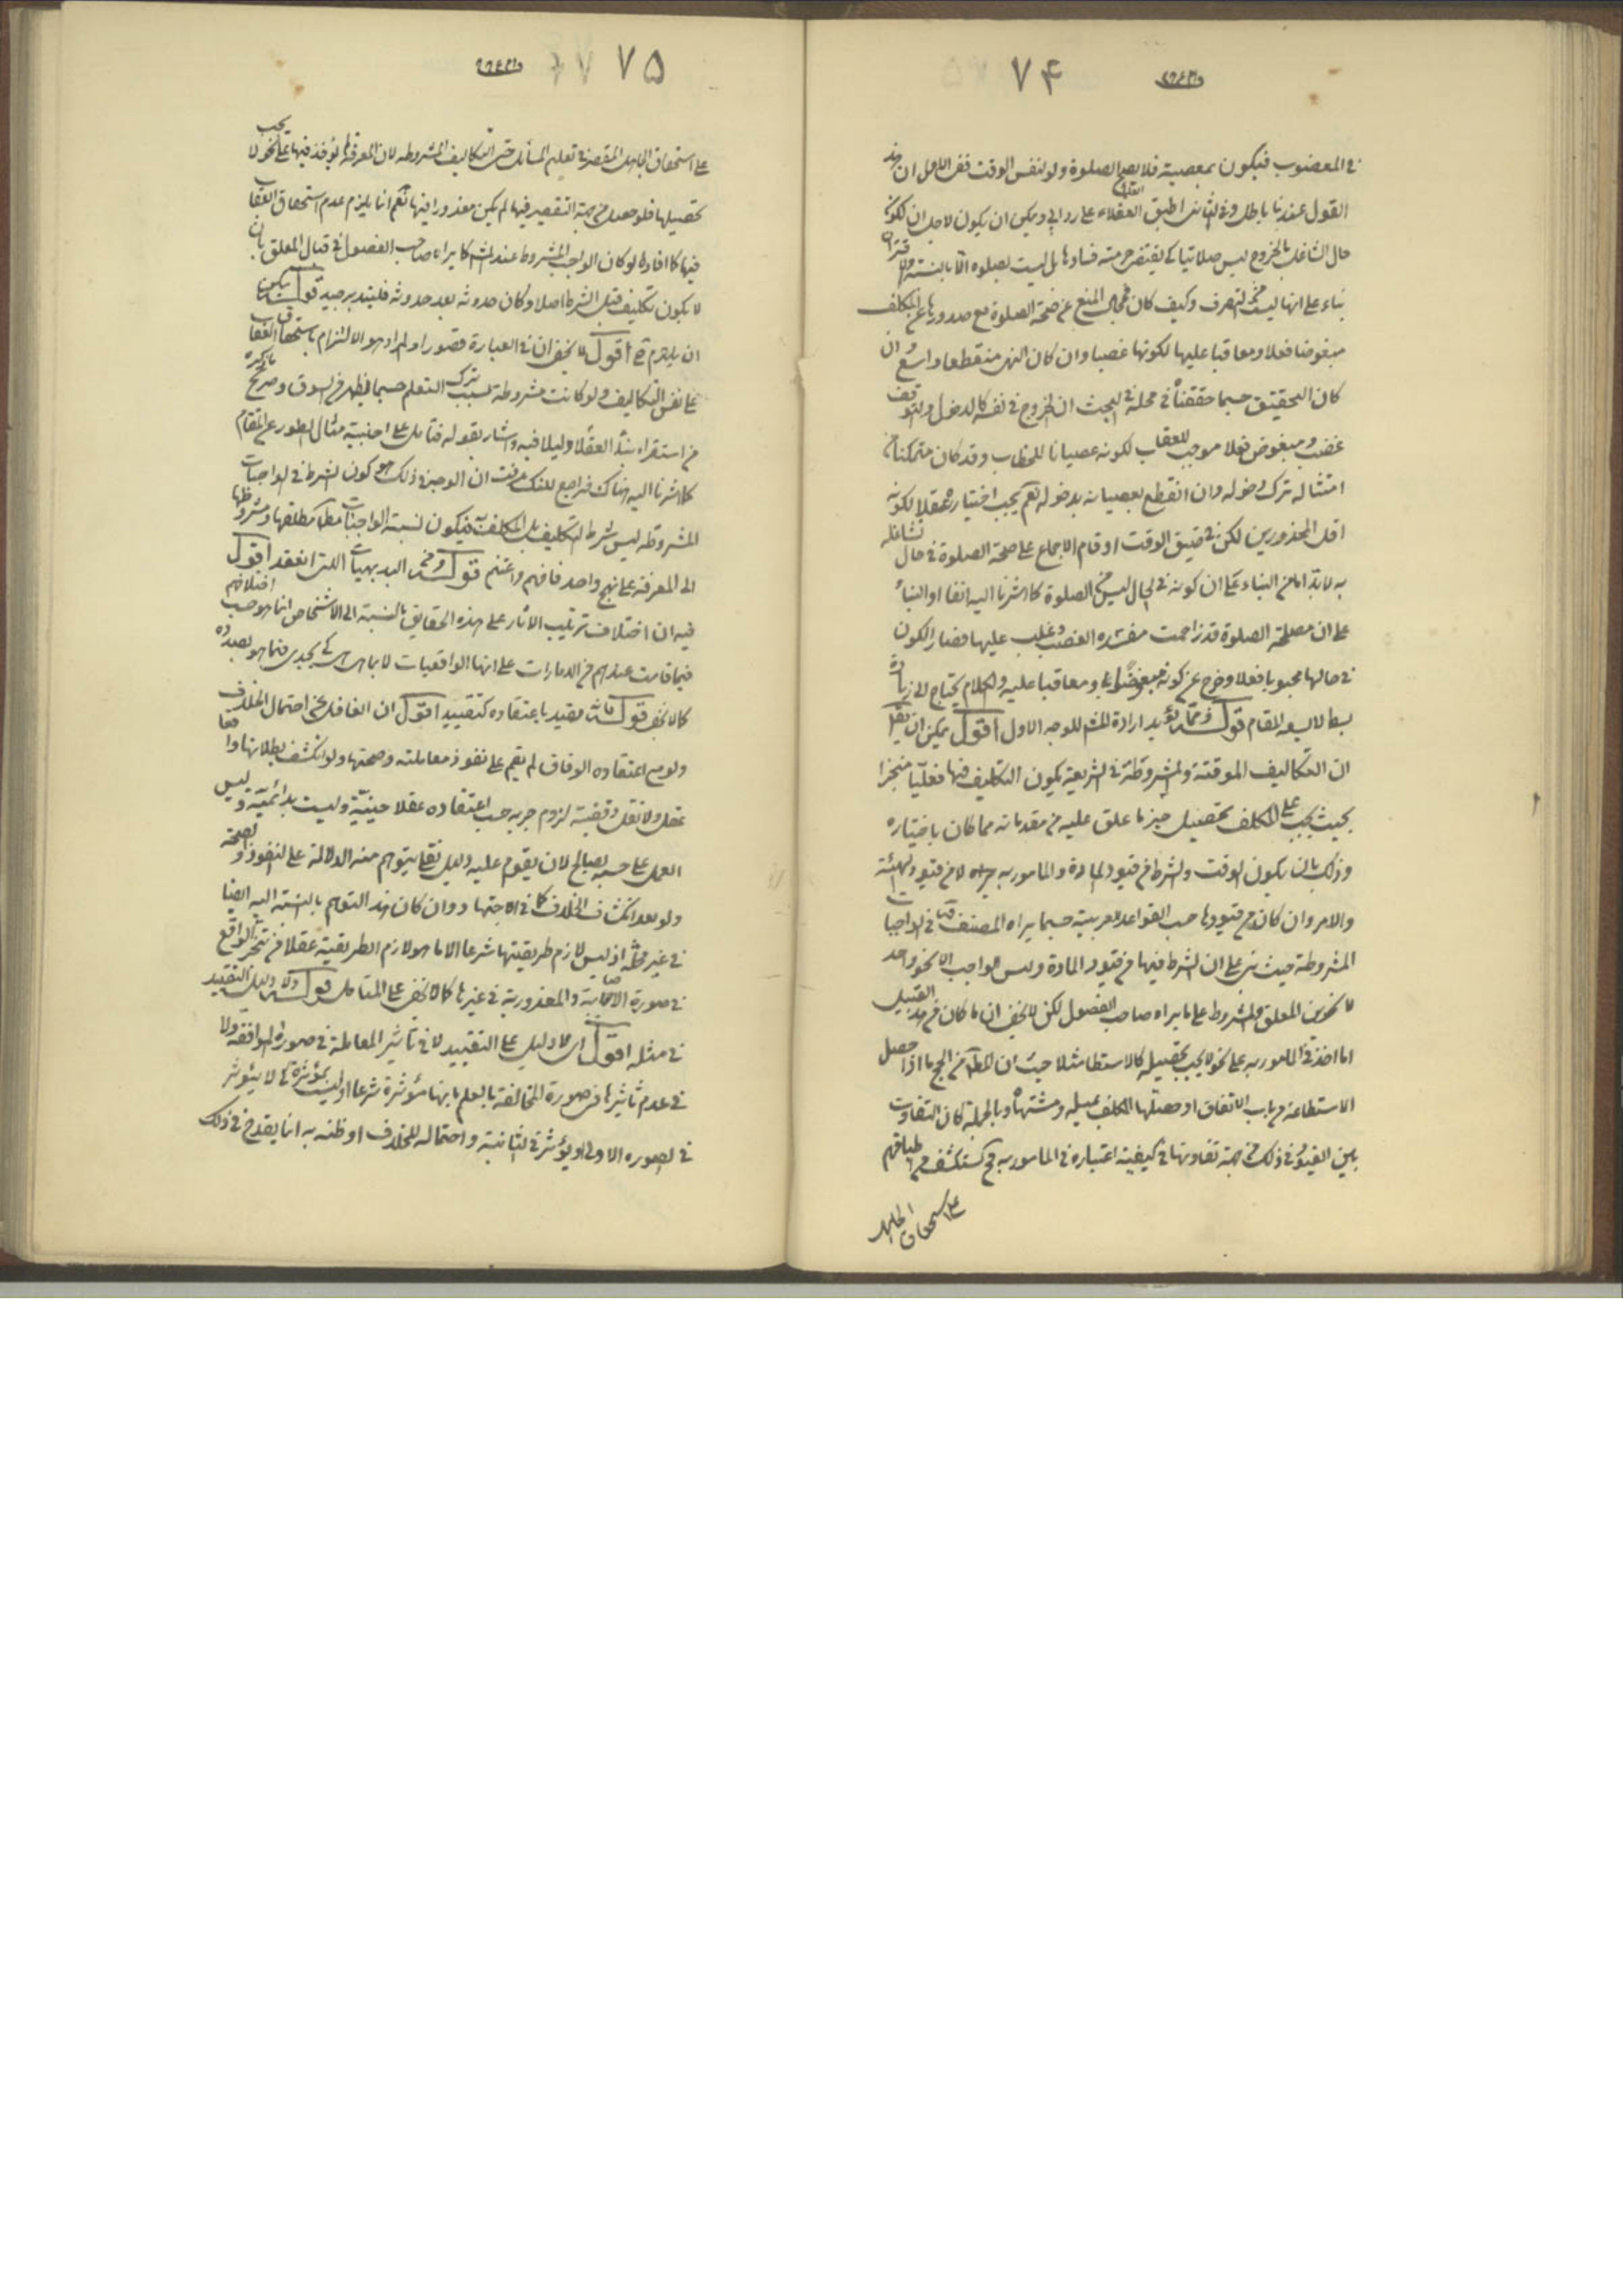 ۷۴
في المغصوب فيكون بمعصيته فلا يصح الصلوة ولو لنفس الوقت ففي الاول ان هذا
القول عندنا باطل وفي الثاني اطبق العقلاء على رده ويمكن ان يكون لاجل ان الكون
حال التشاغل بالخروج ليس صلاتيا كي يقتضى حرمته فسادها بل ليست بصلوة الا بالنسبة
بناء على انها ليست من التصرف وكيف كان فمجال المنع عن صحة الصلوة مع صدورها عن المكلف
مبغوضا فعلا ومعاقبا عليها لكونها غصبا وان كان النهى منقطعا واسع وان
كان التحقيق حسبما حققناه في محله في البحث ان الخروج في نفسه كالدخول والتوقف
غصب ومبغوض فعلا موجب للعقاب لكونه عصيانا للخطاب وقد كان متمكنا من
امتثاله بترك دخوله وان انقطع بعصيانه بدخوله نعم يجب اختياره عقلا لكونه
اقل المحذورين لكن في ضيق الوقت او قام الاجماع على صحة الصلوة في حال تشاغله
به لا بد اما من البناء على ان كونه في الحال ليس من الصلوة كما اشرنا اليه انفا او البناء
على ان مصلحة الصلوة قد زاحمت مفسدة الغصب وغلب عليها فصار الكون
في حالها محبوبا فعلا وخرج عن كونه مبغوضا ومعاقبا عليه والكلام يحتاج الى زيادة
بسط لا يسعه المقام قوله ومما يؤيد ارادة المشهور للوجه الاول اقول يمكن ان يقال
ان التكاليف الموقتة والمشروطة في الشريعة يكون التكليف فيها فعليا منجزا
بحيث يجب على المكلف تحصيل جزء ما علق عليه من مقدماته مما كان باختياره
وذلك بان يكون الوقت والشرط من قيود المادة والمامور به لا من قيود الهيئة
والامر وان كان من قيودها حسب القواعد العربية حسبما يراه المصنف قده في الواجبات
المشروطة حيث بنى على ان الشرط فيها من قيود المادة وليس الواجب الا بنحو واحد
لا نحوين المعلق والمشروط على ما يراه صاحب الفصول لكن لا يخفى ان ما كان من هذا القبيل
اما اخذ في المامور به على نحو لا يجب تحصيله كالاستطاعة مثلا حيث ان المطلوب من الحج ما اذا حصل
الاستطاعة من باب الاتفاق او حصلها المكلف بميله ومشتهاه وبالجملة كان التفاوت
بين القيود في ذلك من جهة تفاوتها في كيفية اعتباره في المامور به فح يستكشف من اطباقهم
على استحقاق الجاهل
۷۵
على استحقاق الجاهل المقصر في تعليم المسائل حتى التكاليف المشروطة لان المعرفة لم يؤخذ فيها على نحو لا يجب
تحصيلها فلو حصل من جهة التقصير فيها لم يكن معذورا فيها نعم انما يلزم عدم استحقاق العقاب
فيها كما افاده لو كان الواجب المشروط عند المشهور كما يراه صاحب الفصول في قبال المعلق بان
لا يكون تكليف قبل الشرط اصلا وكان حدوثه بعد حدوثه فليتدبر جيدا قوله يمكن
ان يلتزم ح اقول لا يخفى ان في العبارة قصورا والمراد هو الالتزام باستحقاق العقاب
على نفس التكاليف ولو كانت مشروطة بسبب ترك التعلم حسبما يظهر من السوق وصرح
من استقراء بناء العقلاء دليلا فيه واشار بقوله فتامل على اجنبية مثال الطومار عن المقام
كما اشرنا اليه هناك فراجع لكنك عرفت ان الوجه في ذلك هو كون الشرط في الواجبات
المشروطة ليس شرط التكليف بل المكلف به فيكون نسبة الواجبات مطلقا مطلقها ومشروطها
الى المعرفة على نهج واحد فافهم واغتنم قوله ومن البديهيات التي انعقد اقول
فيه ان اختلاف ترتيب الآثار على هذه الحقايق بالنسبة الى الاشخاص انما هو حسب اختلافهم
فيما قامت عندهم من الامارات على انها الواقعيات لا بما هي هي كي يجدى فيما هو بصدده
كما لا يخفى قوله مقيد باعتقاده كتقييد اقول ان الغافل عن احتمال الخلاف
ولو مع اعتقاده الوفاق لم يقم على نفوذ معاملته وصحتها ولو انكشف بطلانها واقعا
عقل ولا نقل وقضية لزوم جريه حسب اعتقاده عقلا حينية وليست بدائمية وليس
العمل على حسبه بصالح لان يقوم عليه دليل نقلى يتوهم منه الدلالة على النفوذ والصحة
ولو بعد انكشاف الخلاف كما في الاجتهاد وان كان هذا التوهم بالنسبة اليه ايضا
في غير محله اذ ليس لازم طريقيتها شرعا الا ما هو لازم الطريقية عقلا من تنجز الواقع
في صورة الاصابة والمعذورية في غيرها كما لا يخفى على المتامل قوله ولا دليل التقييد
في مثله اقول اى لا دليل على التقييد لا في تاثير المعاملة في صورة الموافقة ولا
في عدم تاثيرها في صورة المخالفة بالعلم بانها مؤثرة شرعا او ليست بمؤثرة كي لا يؤثر
في الصورة الاولى او يؤثر في الثانية واحتماله للخلاف او ظنه به انما يقدح في ذلك